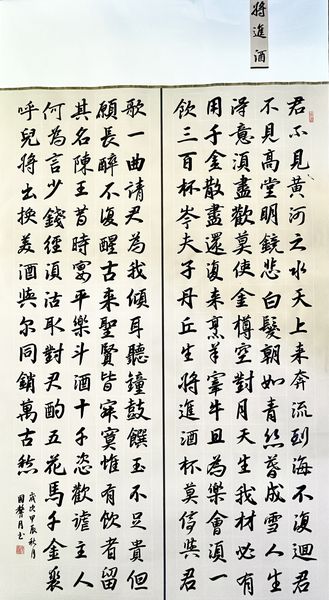 將進酒
君不見黃河之水天上来奔流到海不復迴君
不見高堂明鏡悲白髮朝如青絲暮成雪人生
得意須盡歡莫使金樽空對月天生我材必有
用千金散盡還復来烹羊宰牛且為樂會須一
飲三百杯岑夫子丹丘生將進酒杯莫停與君
歌一曲請君為我傾耳聽鐘鼓饌玉不足貴但
願長醉不復醒古来聖賢皆寂寞惟有飲者留
其名陳王昔時宴平樂斗酒十千恣歡謔主人
何為言少錢徑須沽取對君酌五花馬千金裘
呼兒將出換美酒與尔同銷萬古愁
歲次甲辰秋月